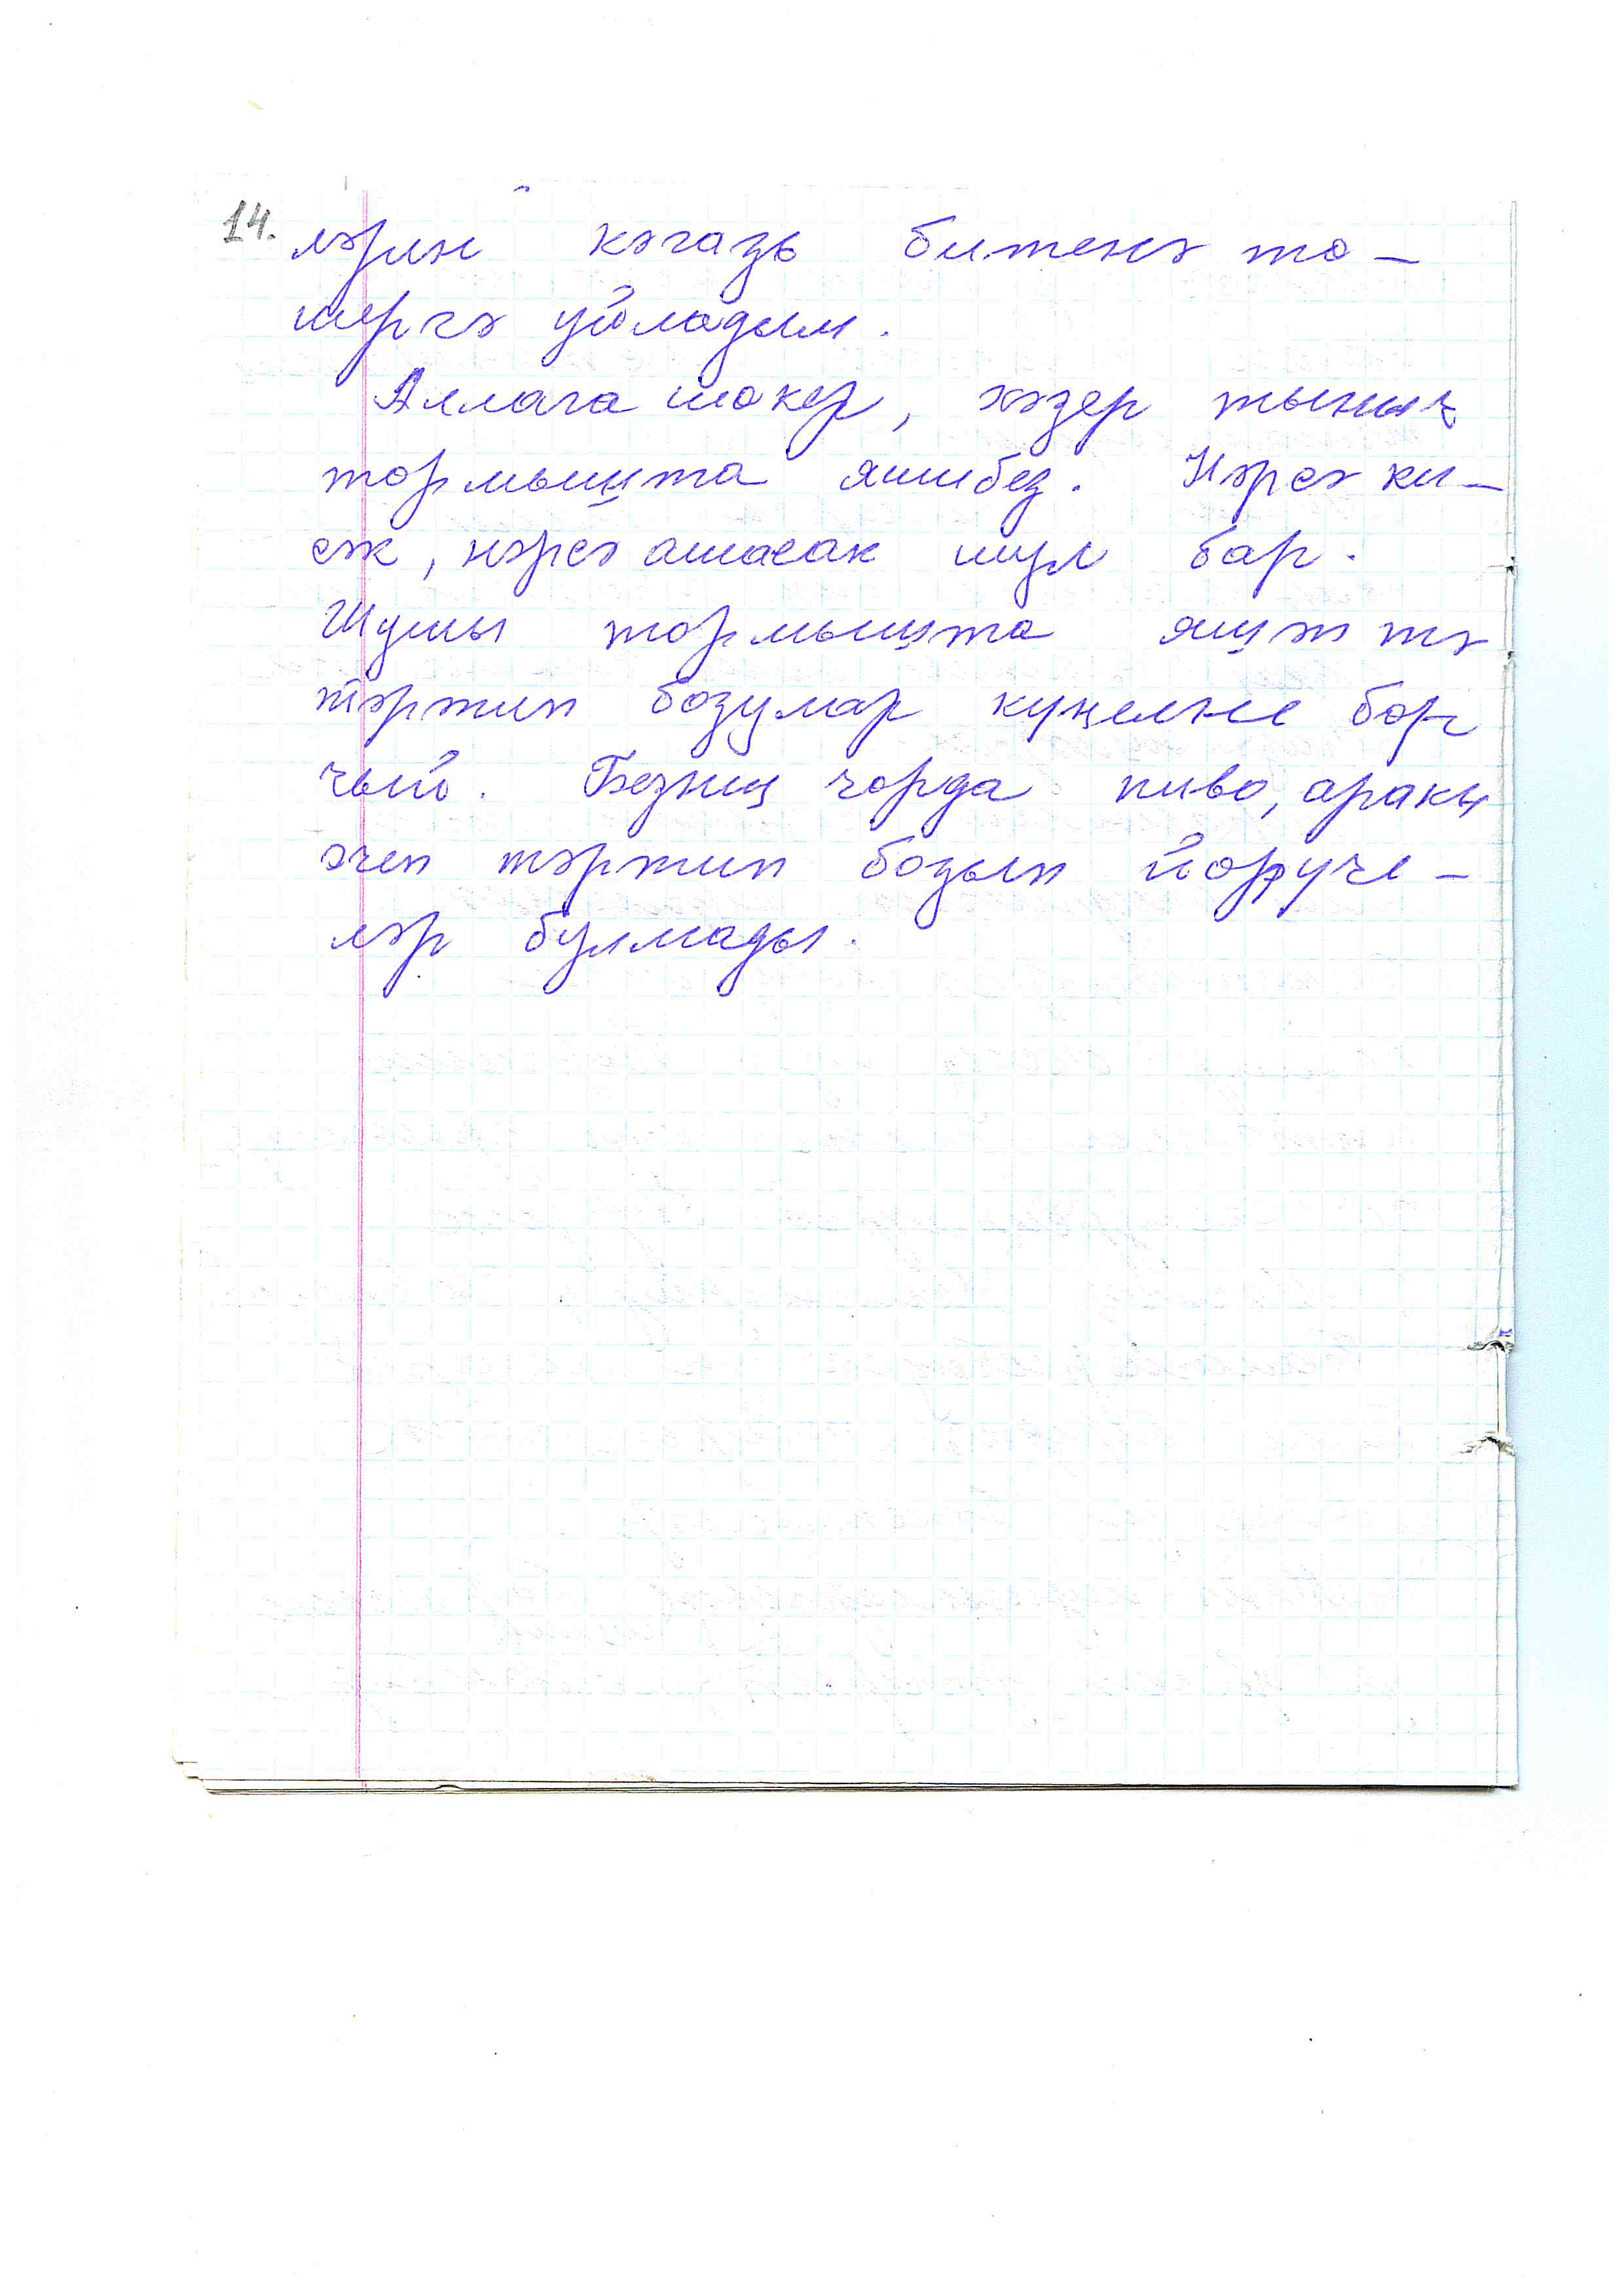 14. ләрен кәгазь битенә тө-
шергә уйладым.
Аллага шөкер, хәзер тыныч
тормышта яшибез. Нәрсә ки-
сәк, нәрсә ашасак шул бар.
Шушы тормышта яшәттә
тәртип бозулар күңелне бор
чый. Безнең чорда пиво, аракы
эчеп тәртип бозып йөрүче-
ләр булмады.